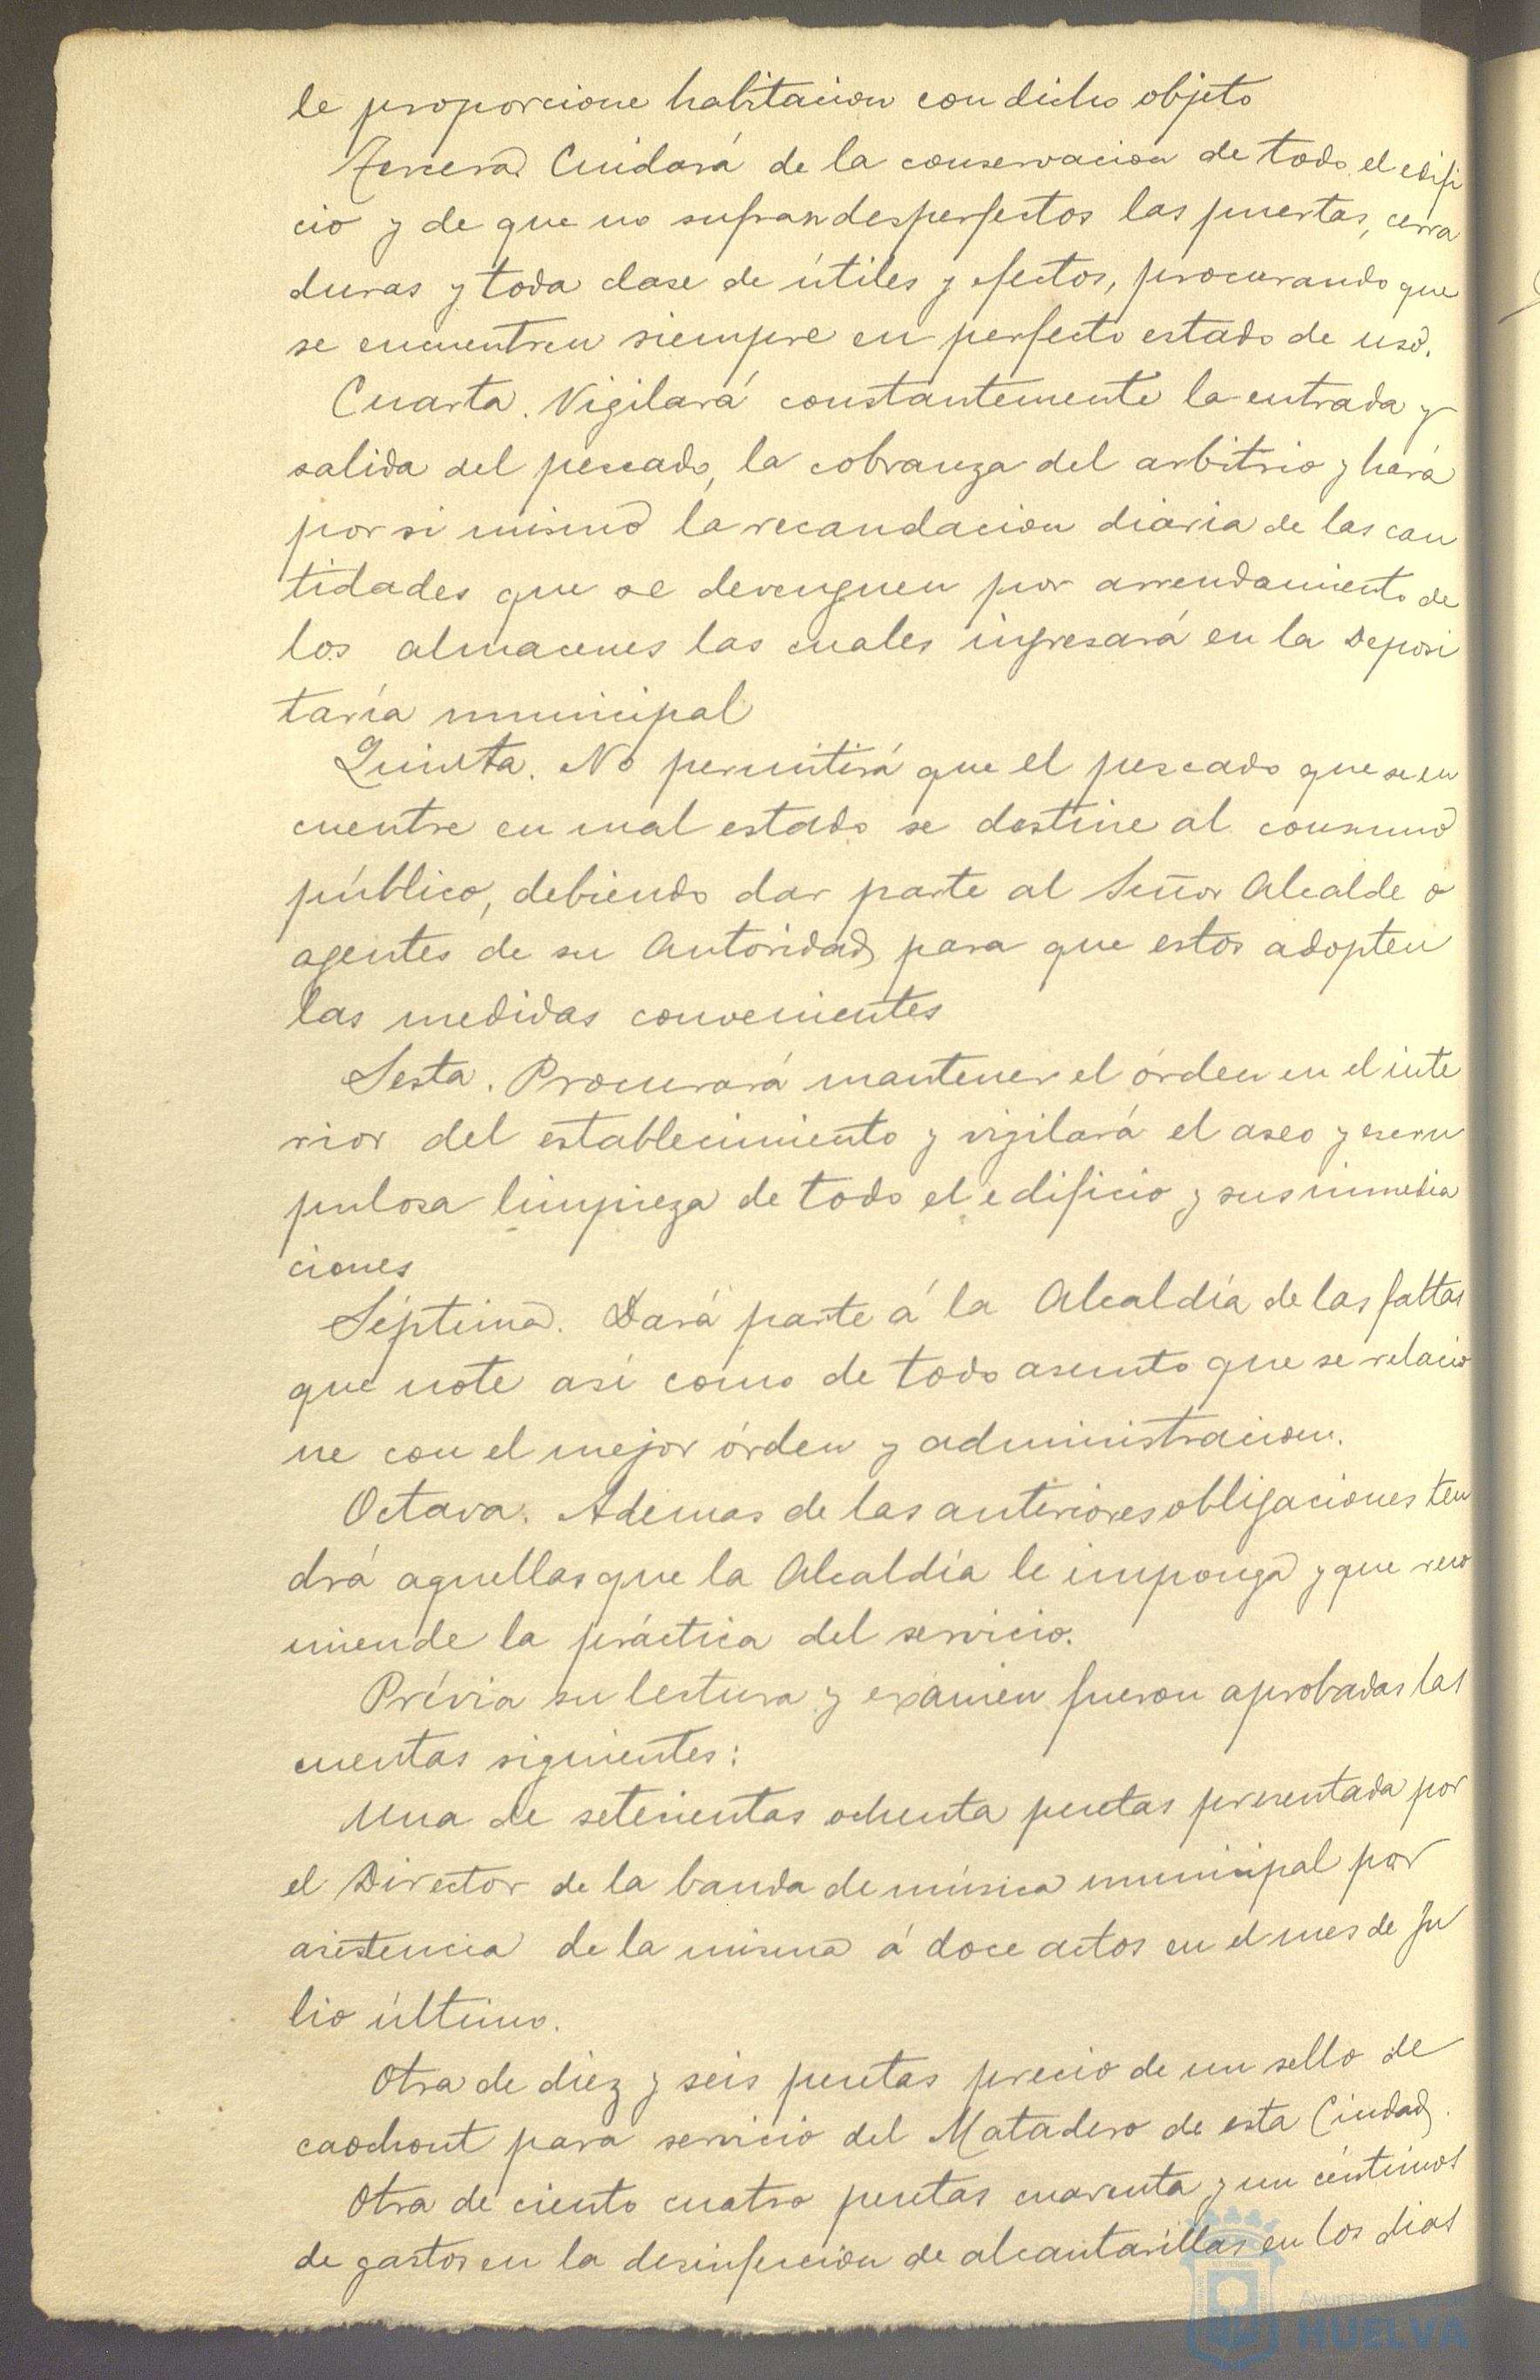 le proporcione habitacion con dicho objeto
Tercera Cuidará de la conservacion de todo el edifi
cio y de que no sufran desperfectos las puertas, cerra
duras y toda clase de útiles y efectos, procurando que
se encuentren siempre en perfecto estado de uso.
Cuarta. Vigilará constantemente la entrada y
salida del pescado, la cobranza del arbitrio y hará
por si mismo la recaudacion diaria de las can
tidades que se devenguen por arrendamiento de
los almacenes las cuales ingresará en la Deposi
taría municipal
Quinta. No permitirá que el pescado que se en
cuentre en mal estado se destine al consumo
público, debiendo dar parte al Señor Alcalde o
agentes de su Autoridad para que estos adopten
las medidas convenientes
Sesta. Procurará mantener el órden en el inte
rior del establecimiento y vigilará el aseo y escru
pulosa limpieza de todo el edificio y sus inmedia
ciones
Séptima. Dará parte á la Alcaldía de las faltas
que note asi como de todo asunto que se relacio
ne con el mejor órden y administracion.
Octava. Ademas de las anteriores obligaciones ten
drá aquellas que la Alcaldía le imponga y que reco
miende la práctica del servicio.
Prévia su lectura y exámen fueron aprobadas las
cuentas siguientes:
Una de setecientas ochenta pesetas presentada por
el Director de la banda de música municipal por
asistencia de la misma á doce actos en el mes de Ju
lio último.
Otra de diez y seis pesetas precio de un sello de
caochout para servicio del Matadero de esta Ciudad.
Otra de ciento cuatro pesetas cuarenta y un céntimos
de gastos en la desinfeccion de alcantarillas en los dias
Ayuntamiento de
HUELVA